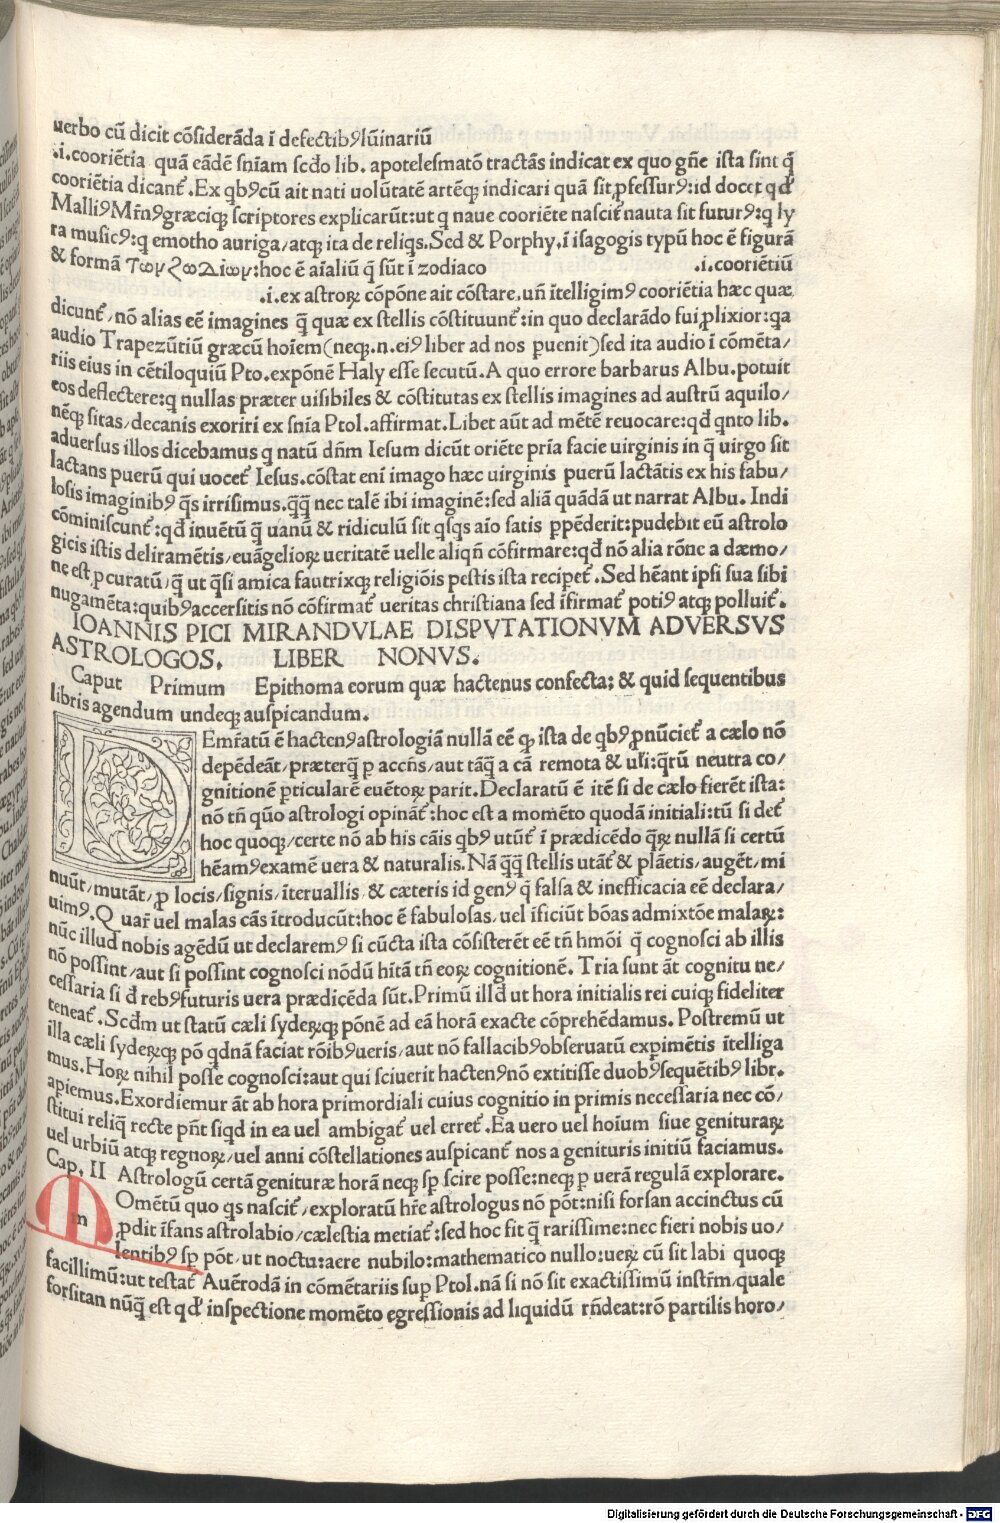 uerbo cũ dicit cõsiderãda ĩ defectibꝰ lũinariũ
.i.cooriẽtia quã eãdẽ sñiam scdo lib. apotelesmatõ tractãs indicat ex quo gñe ista sint q̃
cooriẽtia dicant̃.Ex qbꝰ cũ ait nati uolũtatẽ artẽqꝫ indicari quã sit ꝓfessurꝰ:id docet qd̃
Malliꝰ Mr̃nꝰ græciqꝫ scriptores explicarũt:ut q naue cooriẽte nascit̃ nauta sit futurꝰ:q ly
ra musicꝰ:q emotho auriga/atqꝫ ita de reliqs.Sed & Porphy.ĩ isagogis typũ hoc ẽ figurã
& formã τωμ ζωΔίωμ:hoc ẽ aĩaliũ q̃ sũt ĩ zodiaco .i.cooriẽtiũ
.i.ex astroꝝ cõpõne ait cõstare.uñ ĩtelligimꝰ cooriẽtia hæc quæ
dicunt̃/nõ alias eẽ imagines q̃ quæ ex stellis cõstituunt̃:in quo declarãdo fui ꝓlixior:qa
audio Trapezũtiũ græcũ hoĩem(neqꝫ.n.eiꝰ liber ad nos puenit)sed ita audio ĩ cõmẽta/
riis eius in cẽtiloquiũ Pto.expõnẽ Haly esse secutũ.A quo errore barbarus Albu.potuit
eos deflectere:q nullas præter uisibiles & cõstitutas ex stellis imagines ad austrũ aquilo/
nẽqꝫ sitas/decanis exoriri ex sñia Ptol.affirmat.Libet aũt ad mẽtẽ reuocare:qd̃ qnto lib.
aduersus illos dicebamus q natũ dñm Iesum dicũt oriẽte pria facie uirginis in q̃ uirgo sit
lactans puerũ qui uocet̃ Iesus.cõstat enĩ imago hæc uirginis puerũ lactãtis ex his fabu/
losis imaginibꝰ q̃s irrisimus.q̃q̃ nec talẽ ibi imaginẽ:sed aliã quãdã ut narrat Albu. Indi
cõminiscunt̃:qd̃ inuẽtũ q̃ uanũ & ridiculũ sit qsqs aĩo satis ꝑpẽderit:pudebit eũ astrolo
gicis istis deliramẽtis/euãgelioꝝ ueritatẽ uelle aliqñ cõfirmare:qd̃ nõ alia rõne a dæmo/
ne est ꝓcuratũ/q̃ ut q̃si amica fautrixqꝫ religiõis pestis ista recipet̃.Sed hẽant ipsi sua sibi
nugamẽta:quibꝰ accersitis nõ cõfirmat̃ ueritas christiana sed ĩfirmat̃ potiꝰ atqꝫ polluit̃.
IOANNIS PICI MIRANDVLAE DISPVTATIONVM ADVERSVS
ASTROLOGOS. LIBER NONVS.
Caput Primum Epithoma eorum quæ hactenus confecta; & quid sequentibus
libris agendum undeqꝫ auspicandum.
DEmr̃atũ ẽ hactenꝰ astrologiã nullã eẽ qꝫ ista de qbꝰ ꝓnũciet̃ a cælo nõ
depẽdeãt/præterq̃ p accñs/aut tãq̃ a cã remota & uľi:qꝛũ neutra co/
gnitionẽ ꝑticularẽ euẽtoꝝ parit.Declaratũ ẽ itẽ si de cælo fierẽt ista:
nõ tñ quõ astrologi opinãt̃:hoc est a momẽto quodã initiali:tũ si det̃
hoc quoqꝫ/certe nõ ab his cãis qbꝰ utũt̃ ĩ prædicẽdo q̃ꝝ nullã si certũ
hẽamꝰ examẽ uera & naturalis.Nã q̃q̃ stellis utãt̃ & plãetis/augẽt/mi
nuũt/mutãt/ꝓ locis/signis/ĩteruallis & cæteris id genꝰ q̃ falsa & inefficacia eẽ declara/
uimꝰ.Quar̃ uel malas cãs ĩtroducũt:hoc ẽ fabulosas/uel ĩficiũt bõas admixtõe malaꝝ:
nũc illud nobis agẽdũ ut declaremꝰ si cũcta ista cõsisterẽt eẽ tñ hmõi q̃ cognosci ab illis
nõ possint/aut si possint cognosci nõdũ hĩtã tñ eoꝝ cognitionẽ.Tria sunt ãt cognitu ne/
cessaria si d̃ rebꝰ futuris uera prædicẽda sũt.Primũ illd̃ ut hora initialis rei cuiqꝫ fideliter
teneat̃.Scd̃m ut statũ cæli syderꝫqꝫ põnẽ ad eã horã exacte cõprehẽdamus.Postremũ ut
illa cæli syderꝫqꝫ põ qdnã faciat rõibꝰ ueris/aut nõ fallacibꝰ obseruatũ expimẽtis ĩtelliga
mus.Hoꝝ nihil posse cognosci:aut qui sciuerit hactenꝰ nõ extitisse duobꝰ sequẽtibꝰ libr.
apiemus.Exordiemur ãt ab hora primordiali cuius cognitio in primis necessaria nec cõ/
stitui reliq̃ recte pñt siqd in ea uel ambigat̃ uel erret̃.Ea uero uel hoĩum siue genituraꝝ
uel urbiũ atqꝫ regnoꝝ/uel anni cõstellationes auspicant̃ nos a genituris initiũ faciamus.
Cap. II Astrologũ certã genituræ horã neqꝫ sp̃ scire posse:neqꝫ p uerã regulã explorare.
mOmẽtũ quo qs nascit̃/exploratũ hr̃e astrologus nõ põt:nisi forsan accinctus cũ
ꝓdit ĩfans astrolabio/cælestia metiat̃:sed hoc fit q̃ rarissime:nec fieri nobis uo/
lentibꝰ sp̃ põt/ut noctu:aere nubilo:mathematico nullo:ueꝝ cũ sit labi quoqꝫ
facillimũ:ut testat̃ Auẽrodã in cõmẽtariis sup Ptol.nã si nõ sit exactissimũ instr̃m/quale
forsitan nũq̃ est qd̃ inspectione momẽto egressionis ad liquidũ rñdeat:rõ partilis horo/
Digitalisierung gefördert durch die Deutsche Forschungsgemeinschaft - DFG